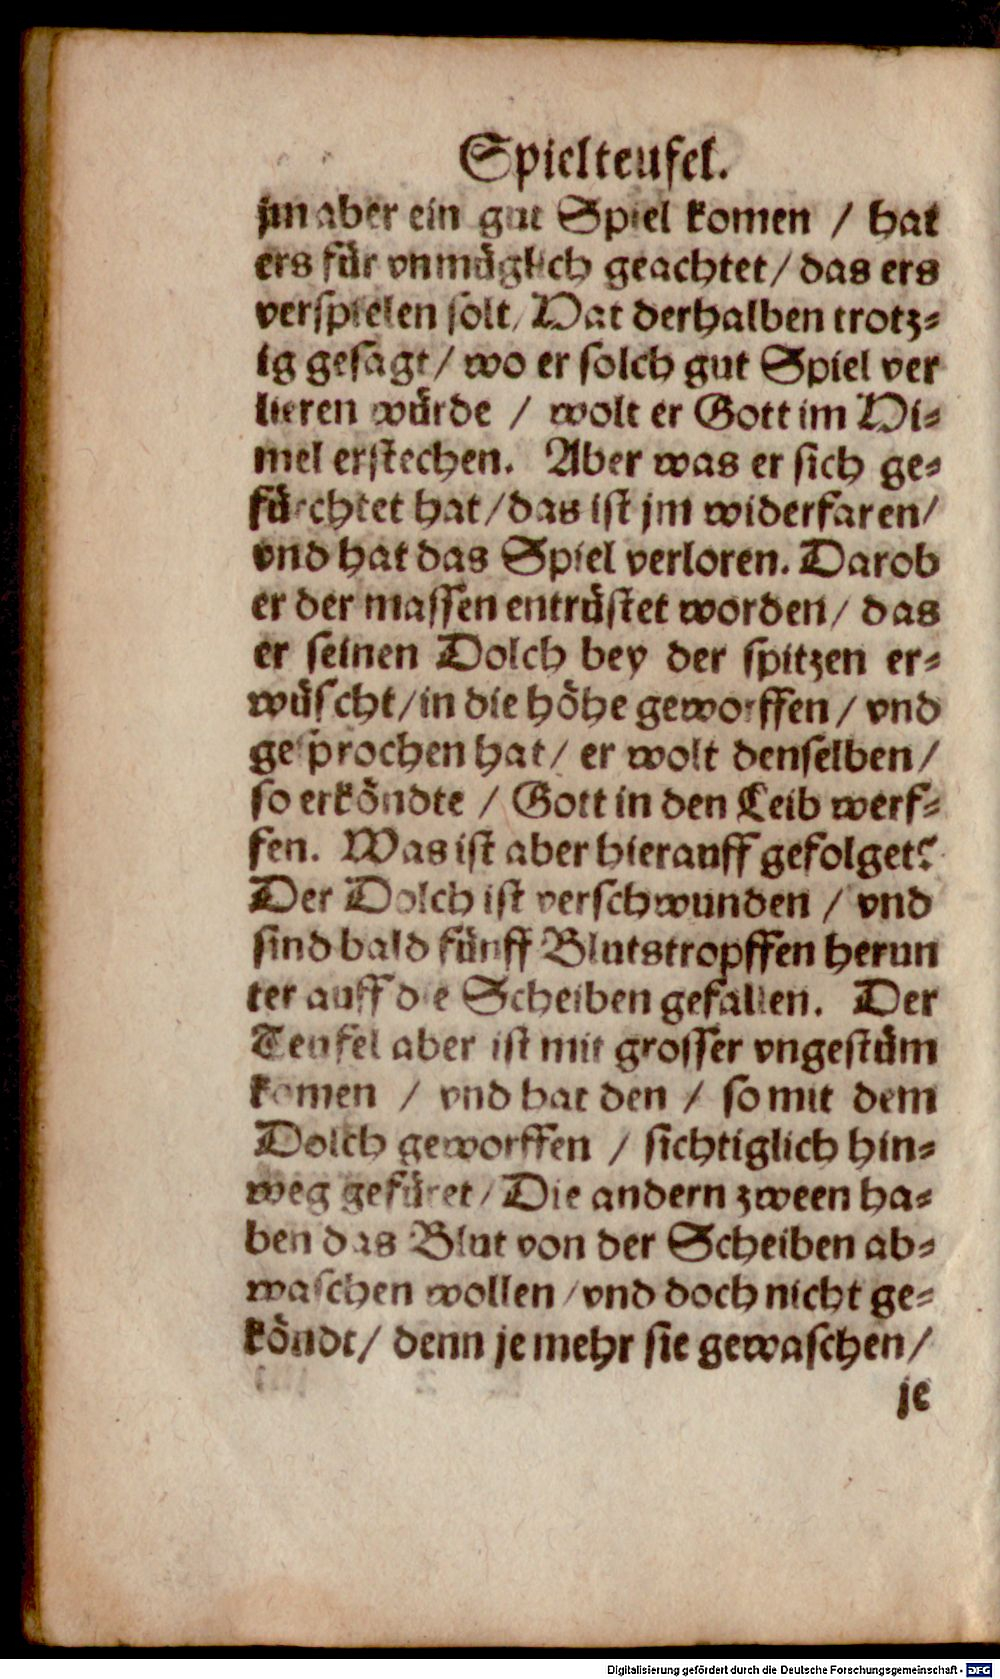 Spielteufel.
jm aber ein gut Spiel komen / hat
ers für vnmüglich geachtet / das ers
verspielen solt / Hat derhalben trotz-
ig gesagt / wo er solch gut Spiel ver
lieren würde / wolt er Gott im Hi-
mel erstechen. Aber was er sich ge-
fürchtet hat / das ist jm widerfaren /
vnd hat das Spiel verloren. Darob
er der massen entrüstet worden / das
er seinen Dolch bey der spitzen er-
wüscht / in die höhe geworffen / vnd
gesprochen hat / er wolt denselben /
so er köndte / Gott in den Leib werf-
fen. Was ist aber hierauff gefolget?
Der Dolch ist verschwunden / vnd
sind bald fünff Blutstropffen herun
ter auff die Scheiben gefallen. Der
Teufel aber ist mit grosser vngestüm
komen / vnd hat den / so mit dem
Dolch geworffen / sichtiglich hin-
weg gefüret / Die andern zween ha-
ben das Blut von der Scheiben ab-
waschen wollen / vnd doch nicht ge-
köndt / denn je mehr sie gewaschen /
je
Digitalisierung gefördert durch die Deutsche Forschungsgemeinschaft - DFG